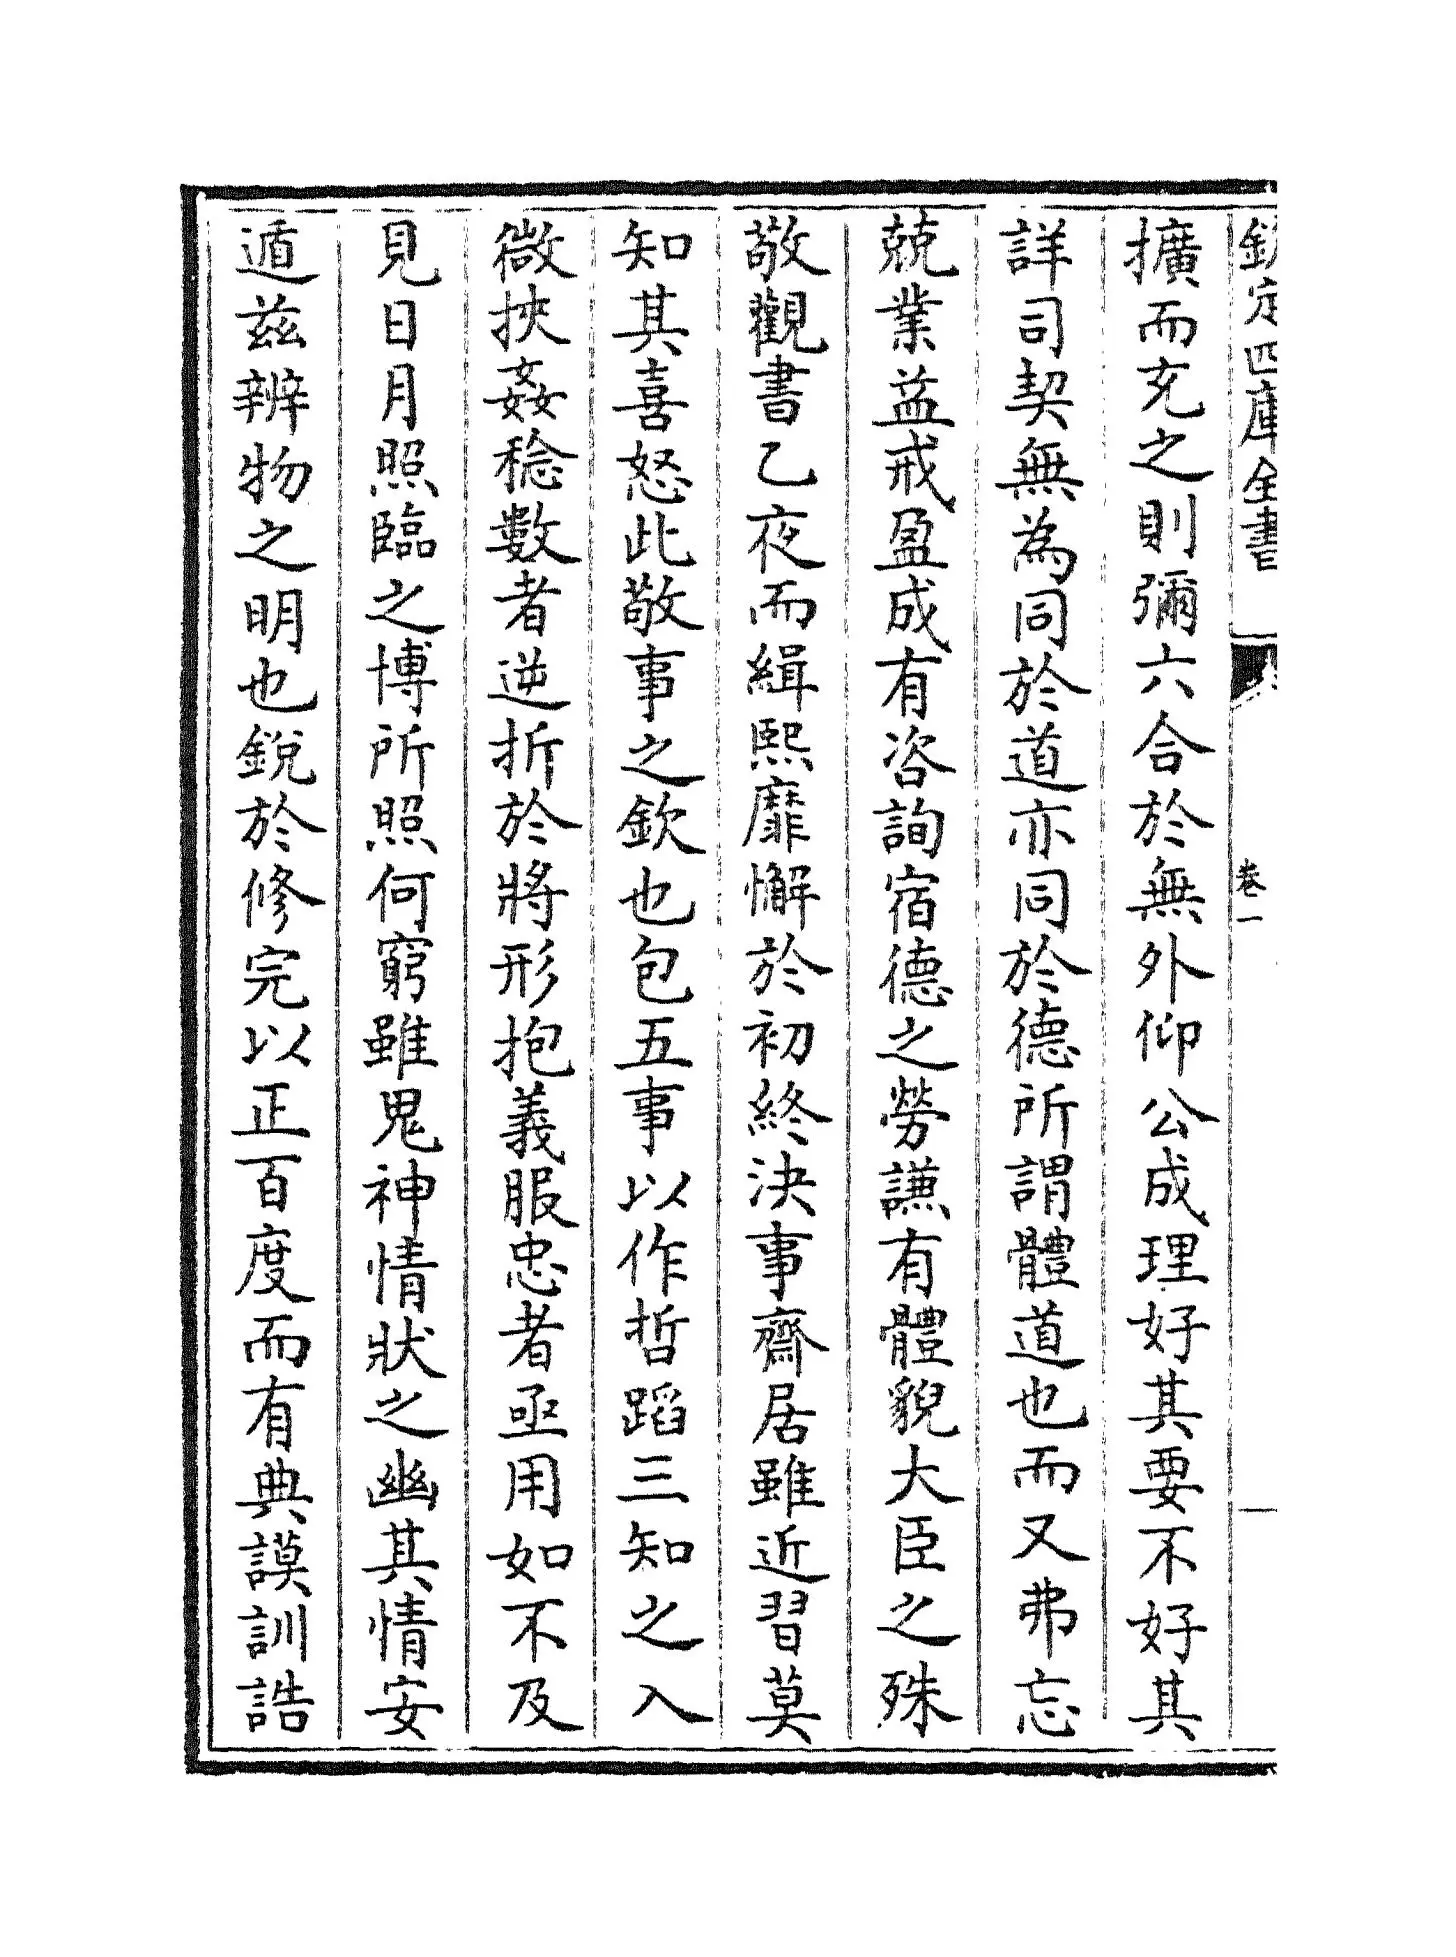 欽定四庫全書
卷一
擴而充之則彌六合於無外仰公成理好其要不好其
詳司契無為同於道亦同於德所謂體道也而又弗忘
兢業益戒盈成有咨詢宿德之勞謙有體貌大臣之殊
敬觀書乙夜而緝熙靡懈於初終決事齋居雖近習莫
知其喜怒此敬事之欽也包五事以作哲蹈三知之入
微挾姦稔數者逆折於將形抱義服忠者亟用如不及
見日月照臨之博所照何窮雖鬼神情狀之幽其情安
遁茲辨物之明也銳於修完以正百度而有典謨訓誥